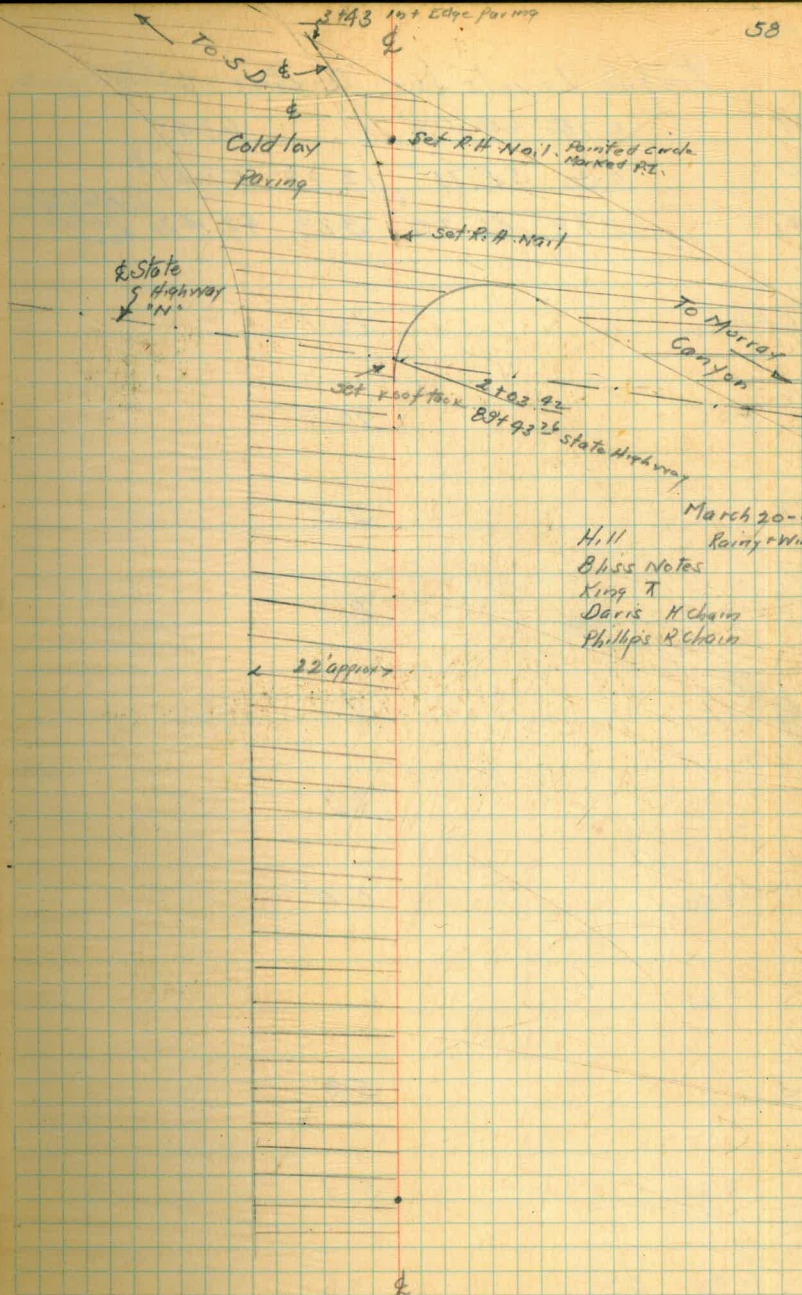 58
3+43 Int Edge Paving
℄
To S.D.
℄
℄
Cold lay
Paving
Set R.H. Nail. Painted circle
Marked P.I.
Set R.H. Nail
℄ State
Highway
"N"
To Murray
Canyon
Set roof tack
2+03.92
89+93.26 State Highway
March 20-
Rainy + Wi
Hill
Bliss Notes
King T
Davis H Chain
Phillips R Chain
22' approx
℄